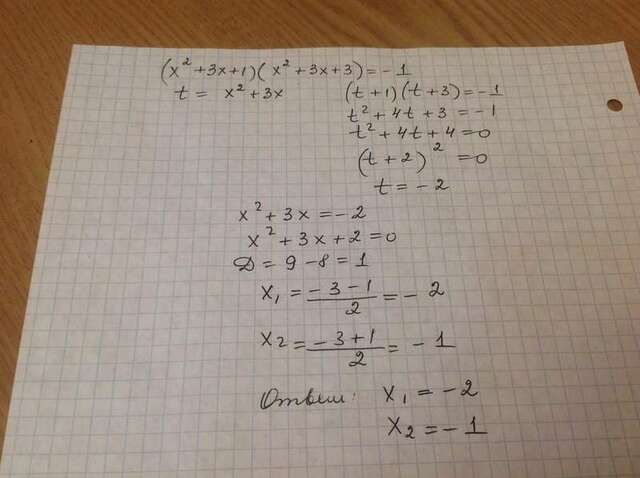 (x² + 3x + 1)(x² + 3x + 3) = -1
t = x² + 3x
(t + 1)(t + 3) = -1
t² + 4t + 3 = -1
t² + 4t + 4 = 0
(t + 2)² = 0
t = -2
x² + 3x = -2
x² + 3x + 2 = 0
D = 9 - 8 = 1
x₁ = (-3 - 1)/2 = -2
x₂ = (-3 + 1)/2 = -1
Ответ: x₁ = -2
x₂ = -1